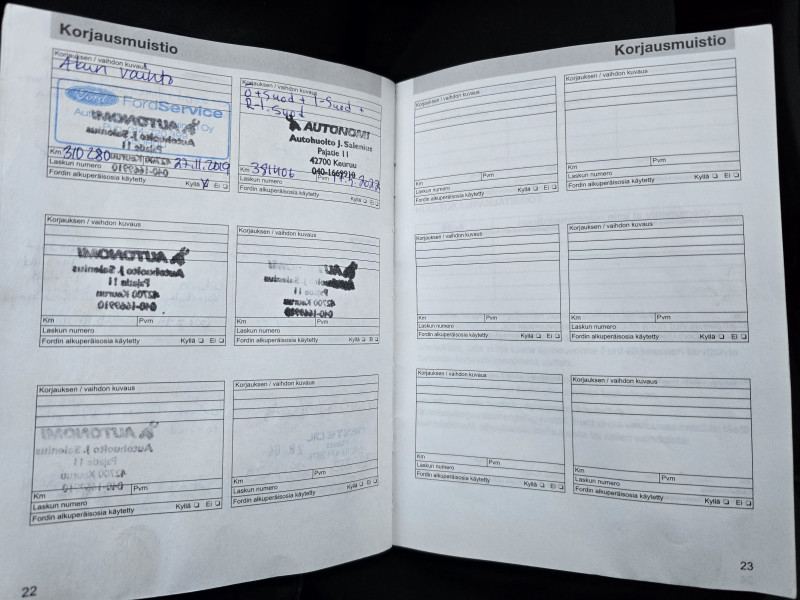 Korjausmuistio
Korjauksen / vaihdon kuvaus
Akun vaihto
Ford
FordService
AUTONOMI
Pajatie 11
Km 310 280
27.11.2019
Laskun numero
040-1669910
Fordin alkuperäisosia käytetty Kyllä Ei
Korjauksen / vaihdon kuvaus
Ö + Suod + I-Suod +
R-I. Suod
AUTONOMI
Autohuolto J. Salenius
Pajatie 11
42700 Keuruu
040-1669910
Km 381406 Pvm
Laskun numero
Fordin alkuperäisosia käytetty Kyllä Ei
Korjauksen / vaihdon kuvaus
AUTONOMI
Autohuolto J. Salenius
Pajatie 11
42700 Keuruu
040-1669910
Km Pvm
Laskun numero
Fordin alkuperäisosia käytetty Kyllä Ei
Korjauksen / vaihdon kuvaus
Pajatie 11
42700 Keuruu
Km Pvm
Laskun numero
Fordin alkuperäisosia käytetty Kyllä Ei
Korjauksen / vaihdon kuvaus
AUTONOMI
Autohuolto J. Salenius
Pajatie 11
42700 Keuruu
Km Pvm
Laskun numero
Fordin alkuperäisosia käytetty Kyllä Ei
Korjauksen / vaihdon kuvaus
Km Pvm
Laskun numero
Fordin alkuperäisosia käytetty Kyllä Ei
22
Korjausmuistio
Korjauksen / vaihdon kuvaus
Km Pvm
Laskun numero
Fordin alkuperäisosia käytetty Kyllä Ei
Korjauksen / vaihdon kuvaus
Km Pvm
Laskun numero
Fordin alkuperäisosia käytetty Kyllä Ei
Korjauksen / vaihdon kuvaus
Km Pvm
Laskun numero
Fordin alkuperäisosia käytetty Kyllä Ei
Korjauksen / vaihdon kuvaus
Km Pvm
Laskun numero
Fordin alkuperäisosia käytetty Kyllä Ei
Korjauksen / vaihdon kuvaus
Km Pvm
Laskun numero
Fordin alkuperäisosia käytetty Kyllä Ei
Korjauksen / vaihdon kuvaus
Km Pvm
Laskun numero
Fordin alkuperäisosia käytetty Kyllä Ei
23